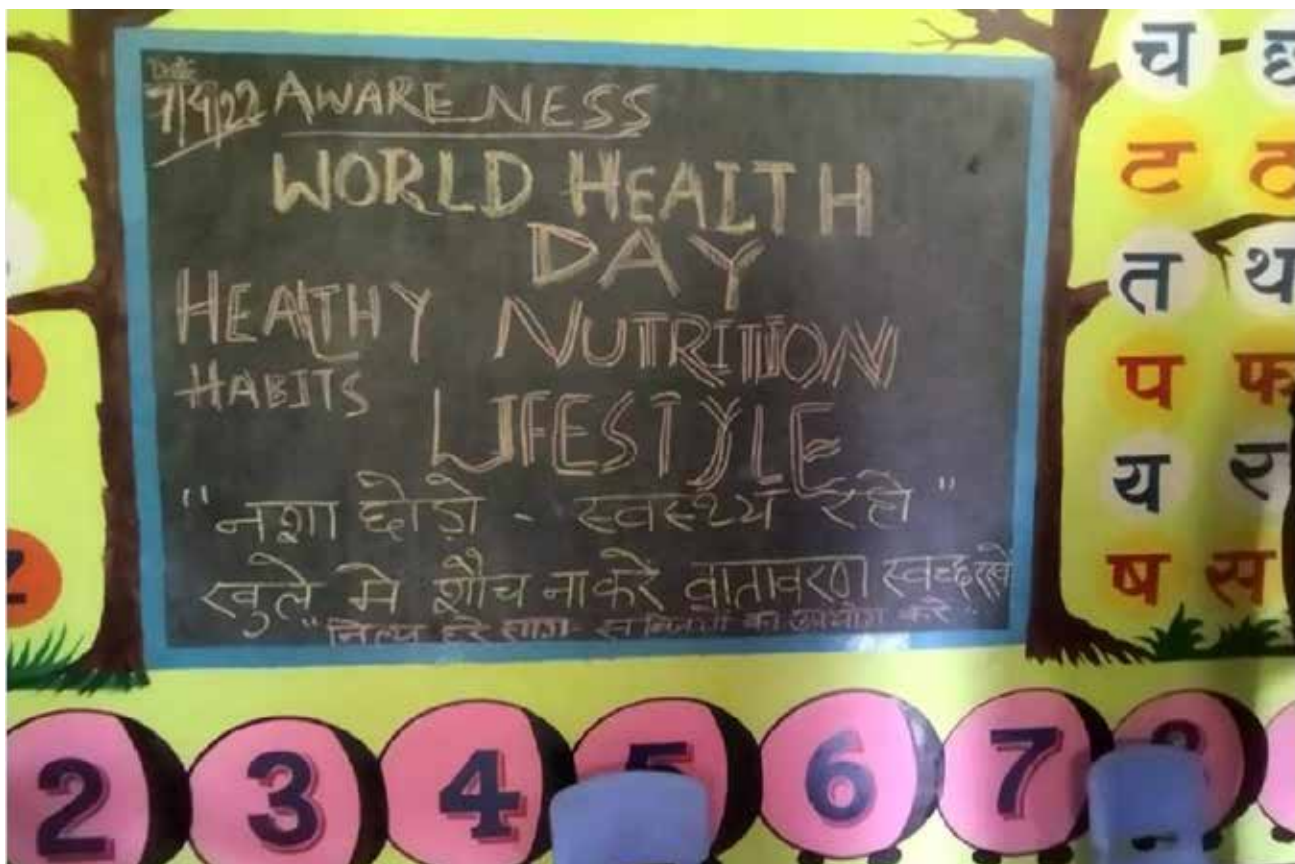 Date
7/4/22 AWARENESS
WORLD HEALTH
DAY
HEALTHY NUTRITION
HABITS LIFESTYLE
"नशा छोड़ो - स्वस्थ्य रहो"
खुले मे शौच ना करे वातावरण स्वच्छ रखे
"नित्य हरे साग - सब्जियों का उपयोग करे"
च छ
ट ठ
त थ
प फ
य र
ष स
2 3 4 5 6 7 8